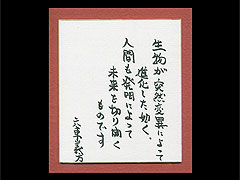 生物が突然変異によって
進化した如く、
人間も発明によって
未来を切り開く
ものです